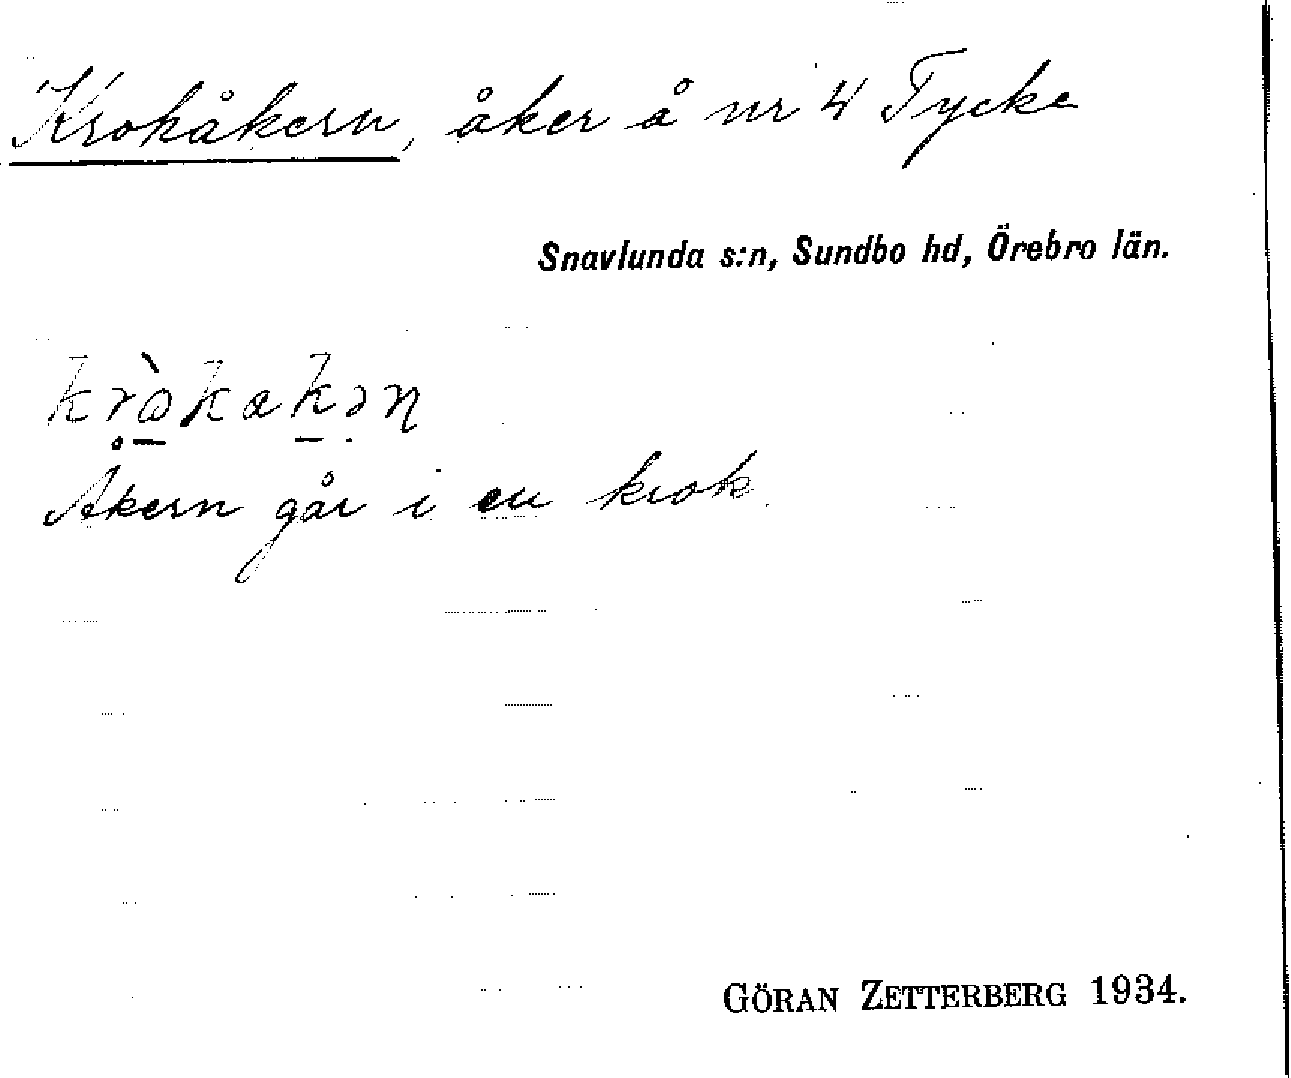 Krokåkern, åker å nr 4 Tycke
Snavlunda s:n, Sundbo hd, Örebro län.
Åkern går i en krok.
GÖRAN ZETTERBERG 1934.